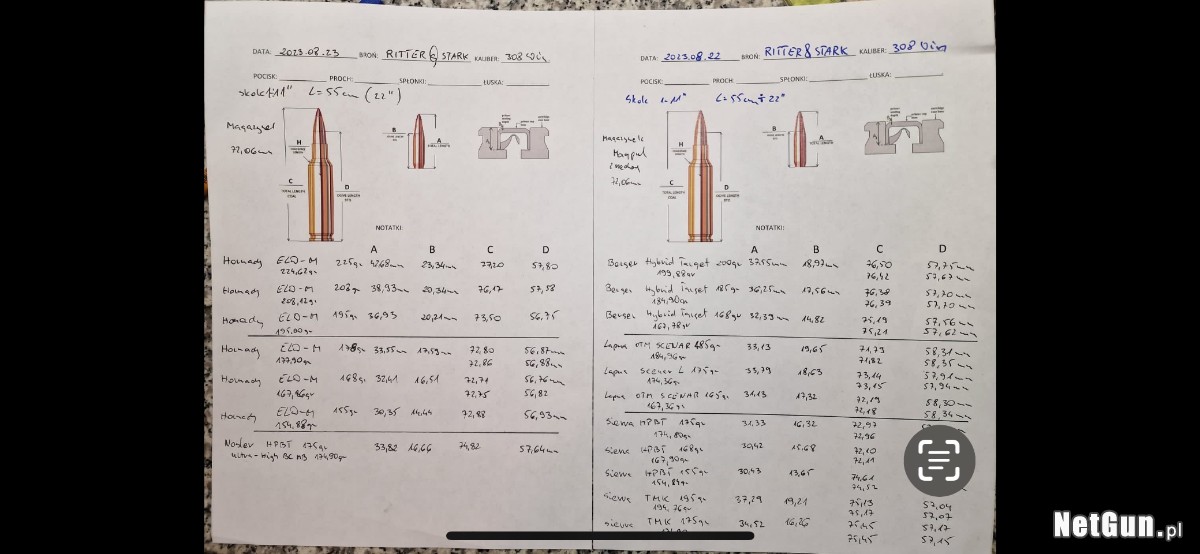 DATA: 2023.08.23 BROŃ: RITTER & STARK KALIBER: 308 Win
POCISK: PROCH: SPŁONKI: ŁUSKA:
skok 1-11" L=55cm (22")
Magazynek
72,06mm
H
B
A
TOTAL LENGTH
C
TOTAL LENGTH
COAL
D
OGIVE LENGTH
BTO
NOTATKI:
A B C D
Hornady ELD-M 225gr 42,68mm 23,34mm 77,20 57,80
224,62gr
Hornady ELD-M 208gr 38,93mm 20,34mm 76,17 57,58
208,12gr
Hornady ELD-M 195gr 36,93 20,21mm 73,50 56,75
195,00gr
Hornady ELD-M 178gr 33,55mm 17,59mm 72,80 56,87mm
177,90gr 72,86 56,88mm
Hornady ELD-M 168gr 32,41 16,51 72,71 56,76mm
167,86gr 72,75 56,82
Hornady ELD-M 155gr 30,35 14,44 72,88 56,93mm
154,88gr
Nosler HPBT 175gr 33,82 16,66 74,82 57,64mm
Ultra-High BC 174,90gr
DATA: 2023.08.22 BROŃ: RITTER & STARK KALIBER: 308 Win
POCISK: PROCH: SPŁONKI: ŁUSKA:
Skok 1-11" L=55cm ÷ 22"
Magazynek
Magpul
72,06mm
H
B
A
TOTAL LENGTH
C
TOTAL LENGTH
COAL
D
OGIVE LENGTH
BTO
NOTATKI:
A B C D
Berger Hybrid Target 200gr 37,55mm 18,97mm 76,50 57,75mm
199,88gr 76,42 57,67mm
Berger Hybrid Target 185gr 36,25mm 17,56mm 76,38 57,70mm
184,90gr 76,39 57,70mm
Berger Hybrid Target 168gr 32,39mm 14,82 75,19 57,56mm
167,78gr 75,21 57,62mm
Lapua OTM SCENAR 185gr 33,13 19,65 71,79 58,31mm
184,96gr 71,82 58,35mm
Lapua Scenar L 175gr 33,79 18,63 73,14 57,91mm
174,36gr 73,15 57,94mm
Lapua OTM SCENAR 165gr 31,13 17,32 72,19 58,30mm
167,36gr 72,18 58,34mm
Sierra HPBT 175gr 31,33 16,32 72,97
174,80gr 72,96
Sierra HPBT 168gr 30,42 15,68 72,10
167,90gr 72,11
Sierra HPBT 155gr 30,43 13,65 74,61
154,84gr 74,52
Sierra TMK 195gr 37,29 19,21 75,13 57,04
194,76gr 75,17 57,07
Sierra TMK 175gr 34,52 16,26 75,45 57,17
75,45 57,15
NetGun.pl